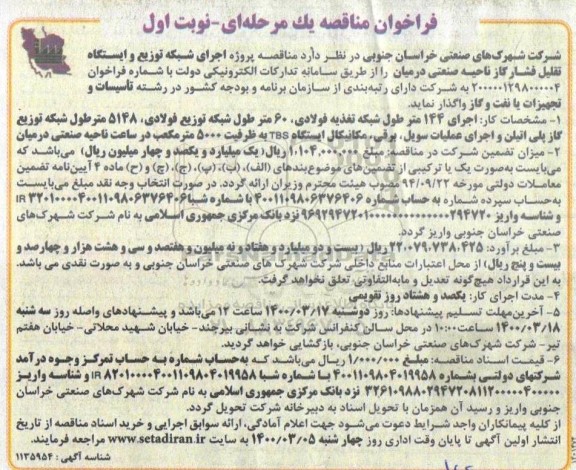 فراخوان مناقصه یك مرحله‌ای-نوبت اول
شرکت شهرک‌های صنعتی خراسان جنوبی در نظر دارد مناقصه پروژه اجرای شبکه توزیع و ایستگاه
تقلیل فشار گاز ناحیه صنعتی درمیان را از طریق سامانه تدارکات الکترونیکی دولت با شماره فراخوان
۲۰۰۰۰۰۱۲۹۸۰۰۰۰۰۴ به شرکت دارای رتبه‌بندی از سازمان برنامه و بودجه کشور در رشته تأسیسات و
تجهیزات یا نفت و گاز واگذار نماید.
۱- مشخصات کار: اجرای ۱۴۴ متر طول شبکه تغذیه فولادی، ۶۰ متر طول شبکه توزیع فولادی، ۵۱۴۸ مترطول شبکه توزیع
گاز پلی اتیلن و اجرای عملیات سویل، برقی، مکانیکال ایستگاه TBS به ظرفیت ۵۰۰۰ مترمکعب در ساعت ناحیه صنعتی درمیان
۲- میزان تضمین شرکت در مناقصه: مبلغ ۱،۱۰۴،۰۰۰،۰۰۰ ریال( یک میلیارد و یکصد و چهار میلیون ریال) می‌باشد که
می‌بایست به‌صورت یک یا ترکیبی از تضمین‌های موضوع بندهای (الف)، (ب)، (پ)، (ج)، (چ) و (ح) ماده ۴ آیین‌نامه تضمین
معاملات دولتی مورخه ۹۴/۰۹/۲۲ مصوب هیئت محترم وزیران ارائه گردد. در صورت انتخاب وجه نقد مبلغ می‌بایست
به‌حساب سپرده شماره به حساب شماره ۴۰۰۱۱۰۹۸۰۶۳۷۶۴۰۶ با شماره شبا IR ۳۲۰۱۰۰۰۰۴۰۰۱۱۰۹۸۰۶۳۷۶۴۰۶
و شناسه واریز نزد بانک مرکزی جمهوری اسلامی به نام شرکت شهرک‌های
صنعتی خراسان جنوبی واریز گردد.
۳- مبلغ برآورد: ۲۲،۰۷۹،۷۳۸،۴۲۵ ریال (بیست و دو میلیارد و هفتاد و نه میلیون و هفتصد و سی و هشت هزار و چهارصد و
بیست و پنج ریال) از محل اعتبارات منابع داخلی شرکت شهرک های صنعتی خراسان جنوبی و به صورت نقدی می باشد.
به این قرارداد هیچ‌گونه تعدیل و مابه‌التفاوتی تعلق نخواهد گرفت.
۴- مدت اجرای کار: یکصد و هشتاد روز تقویمی
۵- آخرین‌مهلت تسلیم پیشنهادها: روز دوشنبه ۱۴۰۰/۰۳/۱۷ ساعت ۱۲ می‌باشد و پیشنهادهای واصله روز سه شنبه
۱۴۰۰/۰۳/۱۸ ساعت ۱۰:۰۰ در محل سالن کنفرانس شرکت به نشانی بیرجند- خیابان شهید محلاتی- خیابان هفتم
تیر- شرکت شهرک های صنعتی خراسان جنوبی، بازگشایی خواهد گردید.
۶- قیمت اسناد مناقصه: مبلغ ۱/۰۰۰/۰۰۰ ریال می‌باشد که به‌حساب شماره به حساب تمرکز وجوه درآمد
شرکتهای دولتی بشماره ۴۰۰۱۱۰۹۸۰۴۰۱۹۹۵۸ با شماره شبا IR ۸۲۰۱۰۰۰۰۴۰۰۱۱۰۹۸۰۴۰۱۹۹۵۸ و شناسه واریز
نزد بانک مرکزی جمهوری اسلامی به نام شرکت شهرک‌های صنعتی خراسان
جنوبی واریز و رسید آن همزمان با تحویل اسناد به دبیرخانه شرکت تحویل گردد.
از کلیه پیمانکاران واجد شرایط دعوت می‌شود جهت اعلام آمادگی، ارائه سوابق اجرایی و خرید اسناد مناقصه از تاریخ
انتشار اولین آگهی تا پایان وقت اداری روز چهار شنبه ۱۴۰۰/۰۳/۰۵ به سایت www.setadiran.ir مراجعه فرمایند.
شناسه آگهی : ۱۱۳۵۹۵۴